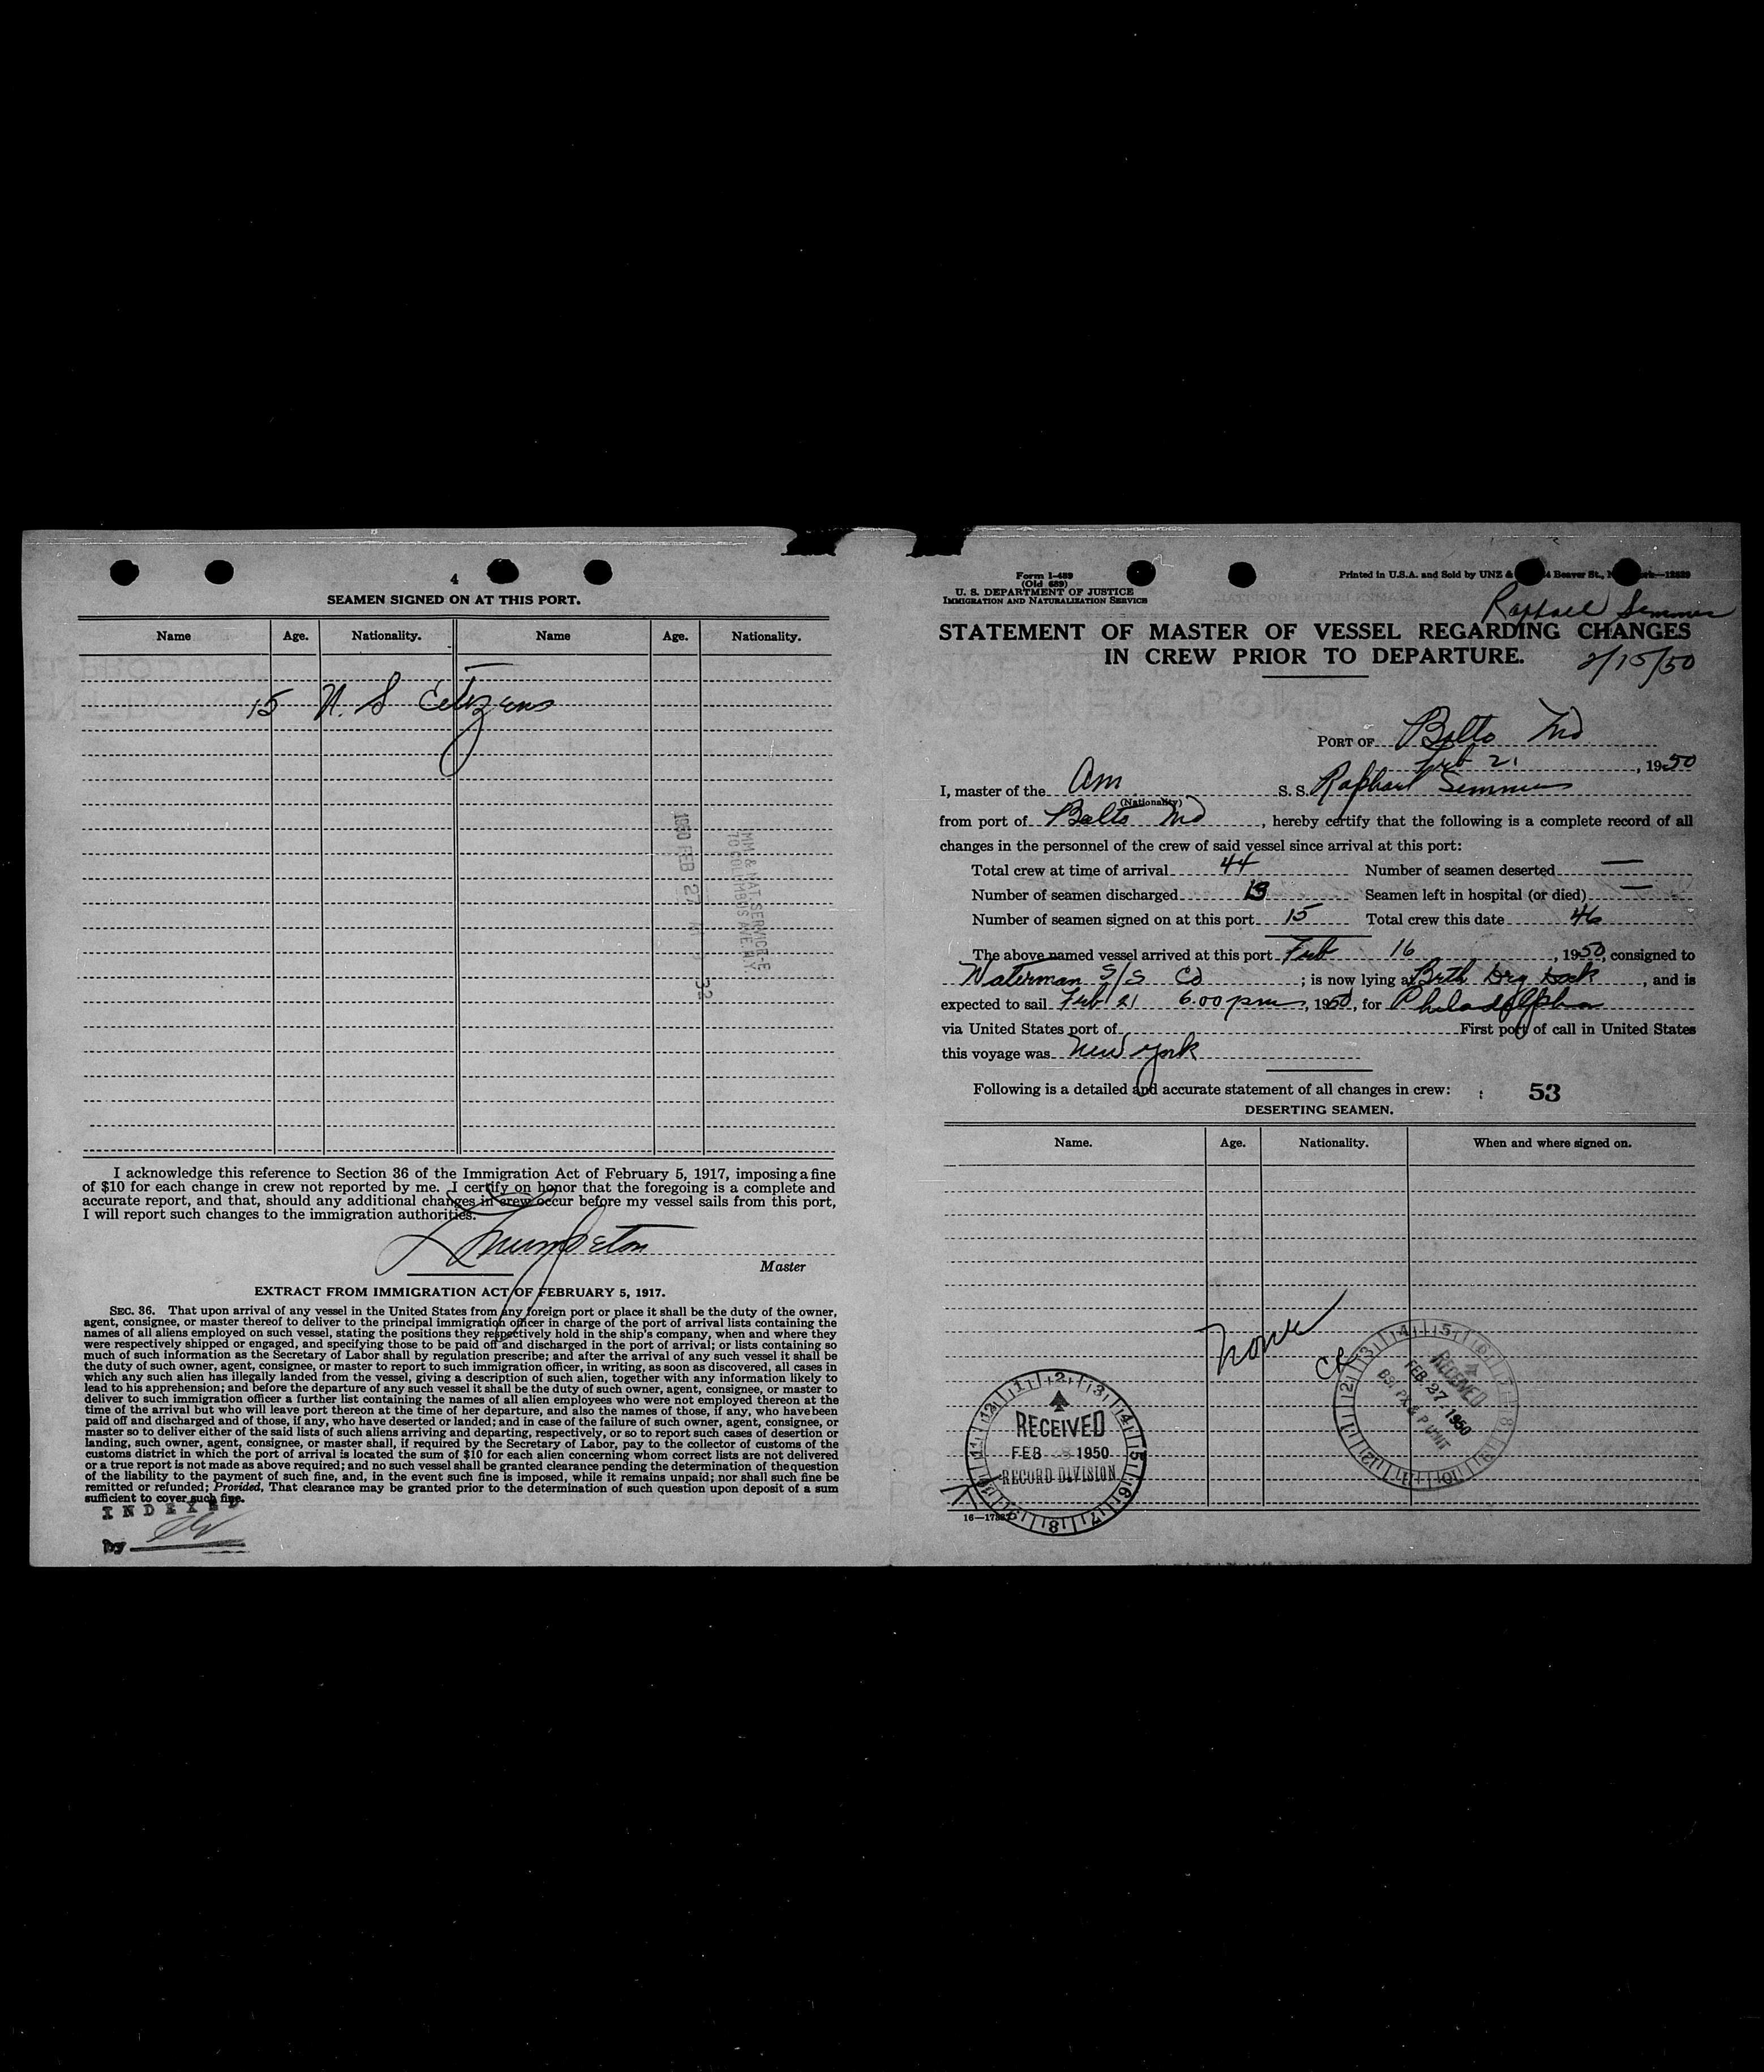 4
SEAMEN SIGNED ON AT THIS PORT.
Name Age. Nationality. Name Age. Nationality.
15 U. S Citizens
1950 FEB 27
IMM & NAT. SERVICE-E
70 COLUMBUS AVE. N.Y.
I acknowledge this reference to Section 36 of the Immigration Act of February 5, 1917, imposing a fine
of $10 for each change in crew not reported by me. I certify on honor that the foregoing is a complete and
accurate report, and that, should any additional changes in crew occur before my vessel sails from this port,
I will report such changes to the immigration authorities.
Master
EXTRACT FROM IMMIGRATION ACT OF FEBRUARY 5, 1917.
SEC. 36. That upon arrival of any vessel in the United States from any foreign port or place it shall be the duty of the owner,
agent, consignee, or master thereof to deliver to the principal immigration officer in charge of the port of arrival lists containing the
names of all aliens employed on such vessel, stating the positions they respectively hold in the ship's company, when and where they
were respectively shipped or engaged, and specifying those to be paid off and discharged in the port of arrival; or lists containing so
much of such information as the Secretary of Labor shall by regulation prescribe; and after the arrival of any such vessel it shall be
the duty of such owner, agent, consignee, or master to report to such immigration officer, in writing, as soon as discovered, all cases in
which any such alien has illegally landed from the vessel, giving a description of such alien, together with any information likely to
lead to his apprehension; and before the departure of any such vessel it shall be the duty of such owner, agent, consignee, or master to
deliver to such immigration officer a further list containing the names of all alien employees who were not employed thereon at the
time of the arrival but who will leave port thereon at the time of her departure, and also the names of those, if any, who have been
paid off and discharged and of those, if any, who have deserted or landed; and in case of the failure of such owner, agent, consignee, or
master so to deliver either of the said lists of such aliens arriving and departing, respectively, or so to report such cases of desertion or
landing, such owner, agent, consignee, or master shall, if required by the Secretary of Labor, pay to the collector of customs of the
customs district in which the port of arrival is located the sum of $10 for each alien concerning whom correct lists are not delivered
or a true report is not made as above required; and no such vessel shall be granted clearance pending the determination of the question
of the liability to the payment of such fine, and, in the event such fine is imposed, while it remains unpaid; nor shall such fine be
remitted or refunded; Provided, That clearance may be granted prior to the determination of such question upon deposit of a sum
sufficient to cover such fine.
INDEXED
by
Form I-489
(Old 689)
U. S. DEPARTMENT OF JUSTICE
IMMIGRATION AND NATURALIZATION SERVICE
Printed in U.S.A. and Sold by UNZ & Beaver St.,
Raphael Semmes
STATEMENT OF MASTER OF VESSEL REGARDING CHANGES
IN CREW PRIOR TO DEPARTURE.
2/15/50
PORT OF Balto Md
Feb 21, 1950
I, master of the Am S. S. Raphael Semmes
(Nationality)
from port of Balto Md, hereby certify that the following is a complete record of all
changes in the personnel of the crew of said vessel since arrival at this port:
Total crew at time of arrival 44 Number of seamen deserted —
Number of seamen discharged 13 Seamen left in hospital (or died) —
Number of seamen signed on at this port 15 Total crew this date 46
The above named vessel arrived at this port Feb 16, 1950, consigned to
Waterman S/S Co; is now lying at Beth Dry Dock, and is
expected to sail Feb 21 6.00 pm, 1950, for Philadelphia
via United States port of First port of call in United States
this voyage was New York
Following is a detailed and accurate statement of all changes in crew: : 53
DESERTING SEAMEN.
Name. Age. Nationality. When and where signed on.
None
RECEIVED
FEB 1950
RECORD DIVISION
RECEIVED
FEB 27 1950